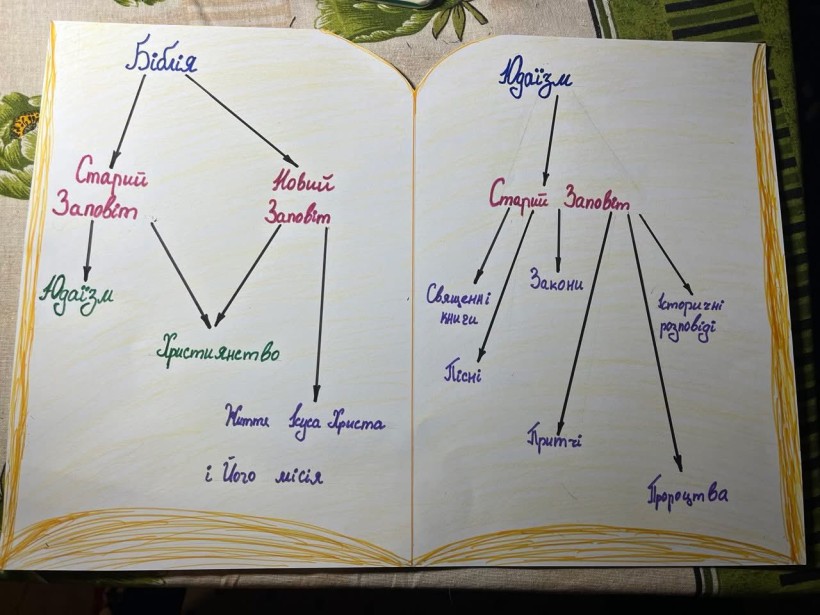 Біблія
Старий
Заповіт
Новий
Заповіт
Юдаїзм
Християнство
Життя Ісуса Христа
і Його місія
Юдаїзм
Старий Заповіт
Священні
книги
Пісні
Закони
Притчі
Пророцтва
Історичні
розповіді